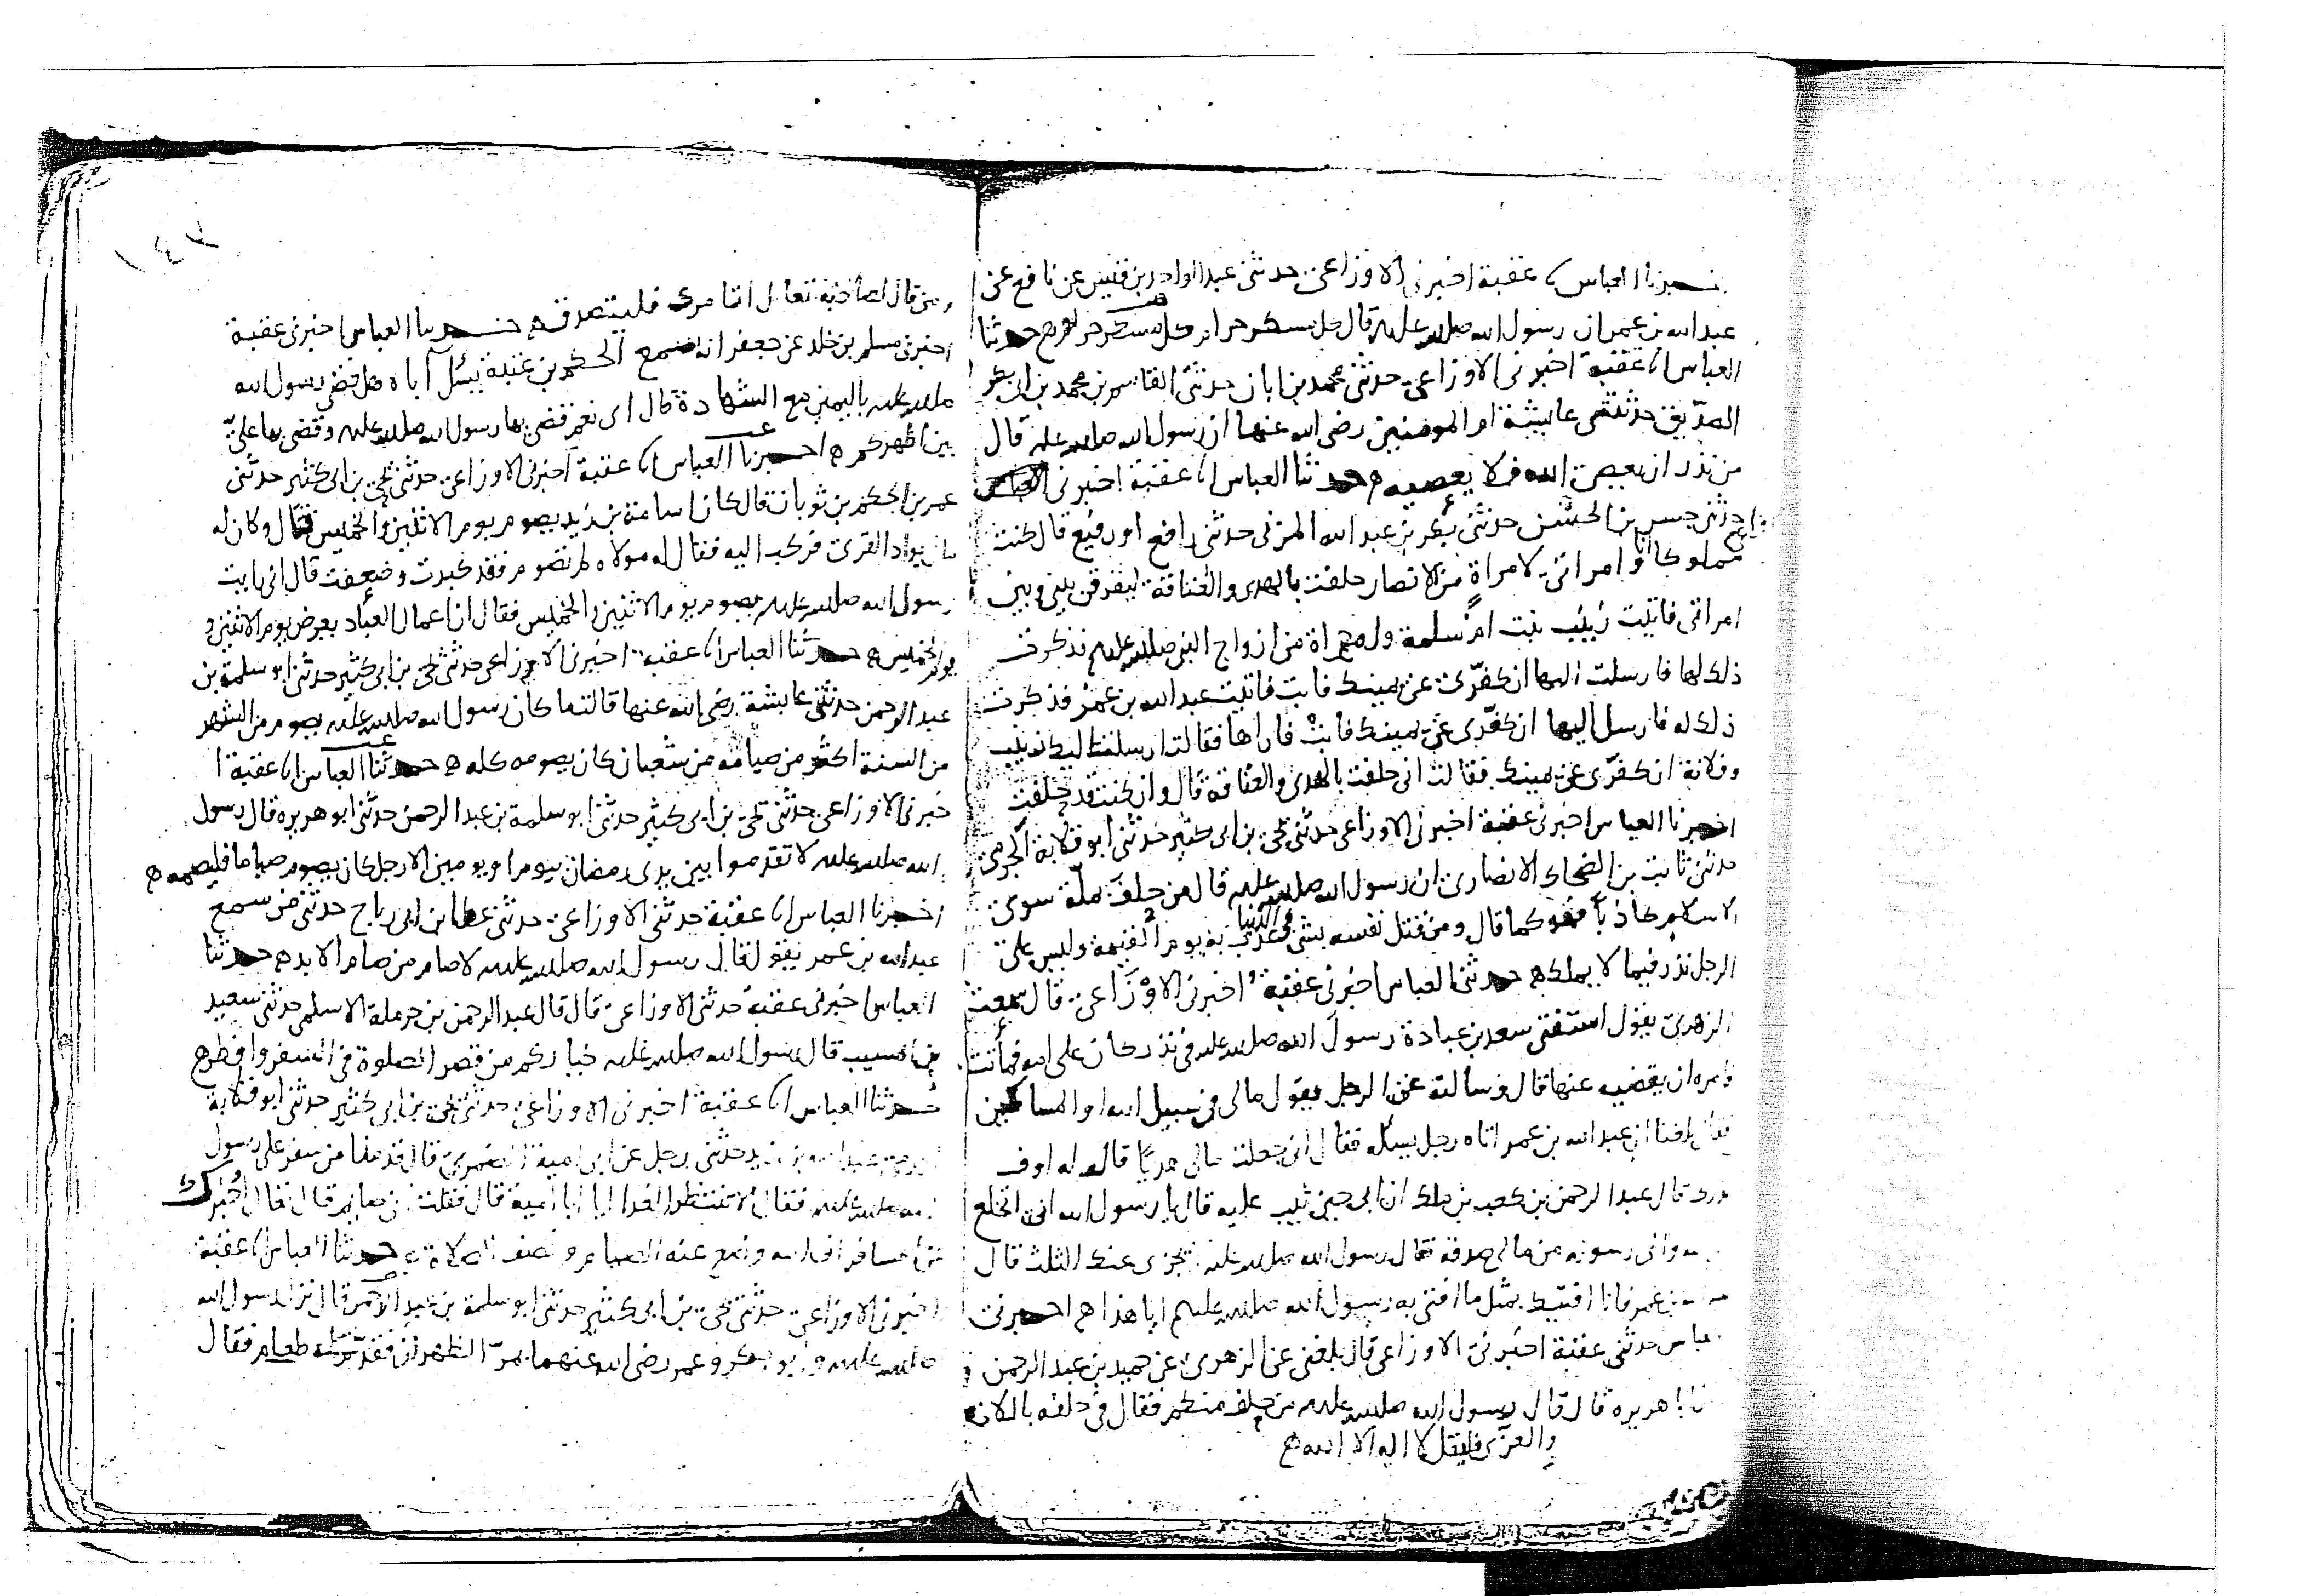 اخبرنا العباس انا عقبة اخبرني الاوزاعي حدثني عبد الواحد بن قيس عن نافع عن
عبد الله بن عمر ان رسول الله صلى الله عليه قال كل مسكر حرام وكل مسكر خمر ه حدثنا
العباس انا عقبة اخبرني الاوزاعي حدثني محمد بن ابان حدثني القاسم بن محمد بن ابي بكر
الصديق حدثتني عايشة ام المومنين رضي الله عنها ان رسول الله صلى الله عليه قال
من نذر ان يعصي الله فلا يعصيه ه حدثنا العباس انا عقبة اخبرني
حدثني جسر بن الحسن حدثني بكر بن عبد الله المزني حدثني رافع ابو رفيع قال كنت
مملوكا انا وامراتي لامراة من الانصار حلفت بالهدى والعتاقة ليفرقن بيني وبين
امراتي فاتيت زينب بنت ام سلمة وامراة من ازواج النبي صلى الله عليه فذكرت
ذلك لها فارسلت اليها ان كفري عن يمينك فابت فاتيت عبد الله بن عمر فذكرت
ذلك له فارسل اليها ان كفري عن يمينك فابت فاراها فقالت ارسلت اليك زينب
وفلانة ان كفري عن يمينك فقالت اني حلفت بالهدى والعتاقة قال وان كنت قد حلفت
اخبرنا العباس اخبرني عقبة اخبرني الاوزاعي حدثني يحيى بن ابي كثير حدثني ابو قلابة الجرمي
حدثني ثابت بن الضحاك الانصاري ان رسول الله صلى الله عليه قال من حلف بملة سوى
الاسلام كاذبا فهو كما قال ومن قتل نفسه بشي في الدنيا عذب به يوم القيمة وليس على
الرجل نذر فيما لا يملك ه حدثنا العباس اخبرني عقبة اخبرني الاوزاعي قال سمعت
الزهري يقول استفتى سعد بن عبادة رسول الله صلى الله عليه في نذر كان على امه فماتت
فامره ان يقضيه عنها قال وسالته عن الرجل يقول مالي في سبيل الله او المساكين
فقال بلغنا ان عبد الله بن عمر اتاه رجل يسئله فقال اني جعلت مالي هديا قال له اوف
نذرك قال عبد الرحمن بن كعب بن ملك ان ابي حين تيب عليه قال يا رسول الله اني انخلع
الى الله والى رسوله من مالي صدقة فقال رسول الله صلى الله عليه تجزي عنك الثلث قال
عبد الله بن عمر فانا افتيك بمثل ما افتى به رسول الله صلى الله عليه ابا هذا ه اخبرني
العباس حدثني عقبة اخبرني الاوزاعي قال بلغني عن الزهري عن حميد بن عبد الرحمن
ان ابا هريرة قال قال رسول الله صلى الله عليه من حلف منكم فقال في حلفه باللات
والعزى فليقل لا اله الا الله ه
١٤٢
ومن قال لصاحبه تعال اقامرك فليتصدق ه حدثنا العباس اخبرني عقبة
اخبرني مسلم بن خلد عن جعفر انه سمع الحكم بن عتبة يسئل اباه هل قضى رسول الله
صلى الله عليه باليمين مع الشهادة قال اي نعم قضى بها رسول الله صلى الله عليه وقضى بها علي
بين اظهركم ه اخبرنا العباس انا عقبة اخبرني الاوزاعي حدثني يحيى بن ابي كثير حدثني
عمر بن الحكم بن ثوبان قال كان اسامة بن زيد يصوم يوم الاثنين والخميس قال وكان له
مال بواد القرى فركب اليه فقال له مولاه لم تصوم فقد كبرت وضعفت قال اني رايت
رسول الله صلى الله عليه يصوم يوم الاثنين والخميس فقال ان اعمال العباد يعرض يوم الاثنين و
يوم الخميس ه حدثنا العباس انا عقبة اخبرني الاوزاعي حدثني يحيى بن ابي كثير حدثني ابو سلمة بن
عبد الرحمن حدثتني عايشة رضي الله عنها قالت ما كان رسول الله صلى الله عليه يصوم من الشهر
من السنة اكثر من صيامه من شعبان كان يصومه كله ه حدثنا العباس انا عقبة ا
خبرني الاوزاعي حدثني يحيى بن ابي كثير حدثني ابو سلمة بن عبد الرحمن حدثني ابو هريرة قال رسول
الله صلى الله عليه لا تقدموا بين يدي رمضان بيوم او يومين الا رجل كان يصوم صياما فليصمه ه
اخبرنا العباس انا عقبة حدثني الاوزاعي حدثني عطا بن ابي رباح حدثني من سمع
عبد الله بن عمر يقول قال رسول الله صلى الله عليه لا صام من صام الابد ه حدثنا
العباس اخبرني عقبة حدثني الاوزاعي قال قال عبد الرحمن بن حرملة الاسلمي حدثني سعيد
بن المسيب قال رسول الله صلى الله عليه خياركم من قصر الصلوة في السفر وافطر ه
حدثنا العباس انا عقبة اخبرني الاوزاعي حدثني يحيى بن ابي كثير حدثني ابو قلابة
الجرمي عبد الله بن زيد حدثني رجل عن ابي امية الضمري قال قدمنا من سفر على رسول
الله صلى الله عليه فقال الا تنتظر الغدا يا ابا امية قال فقلت اني صايم قال تعال اخبرك
عن المسافر ان الله وضع عنه الصيام ونصف الصلاة ه حدثنا العباس انا عقبة
اخبرني الاوزاعي حدثني يحيى بن ابي كثير حدثني ابو سلمة بن عبد الرحمن قال نزل رسول الله
صلى الله عليه وابو بكر وعمر رضي الله عنهما بمر الظهران فقدم طعام فقال